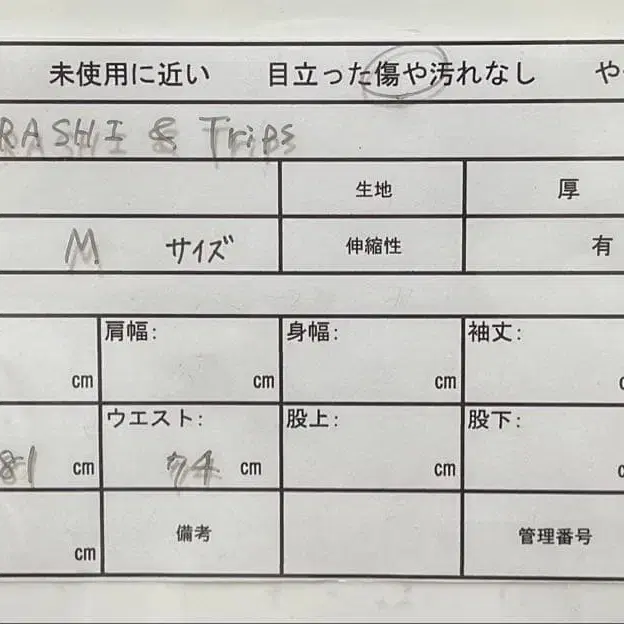 未使用に近い 目立った傷や汚れなし や
RASHI & Trips
生地 厚
M サイズ 伸縮性 有
肩幅: 身幅: 袖丈:
cm cm cm
ウエスト: 股上: 股下:
81 cm 74 cm cm
備考 管理番号
cm